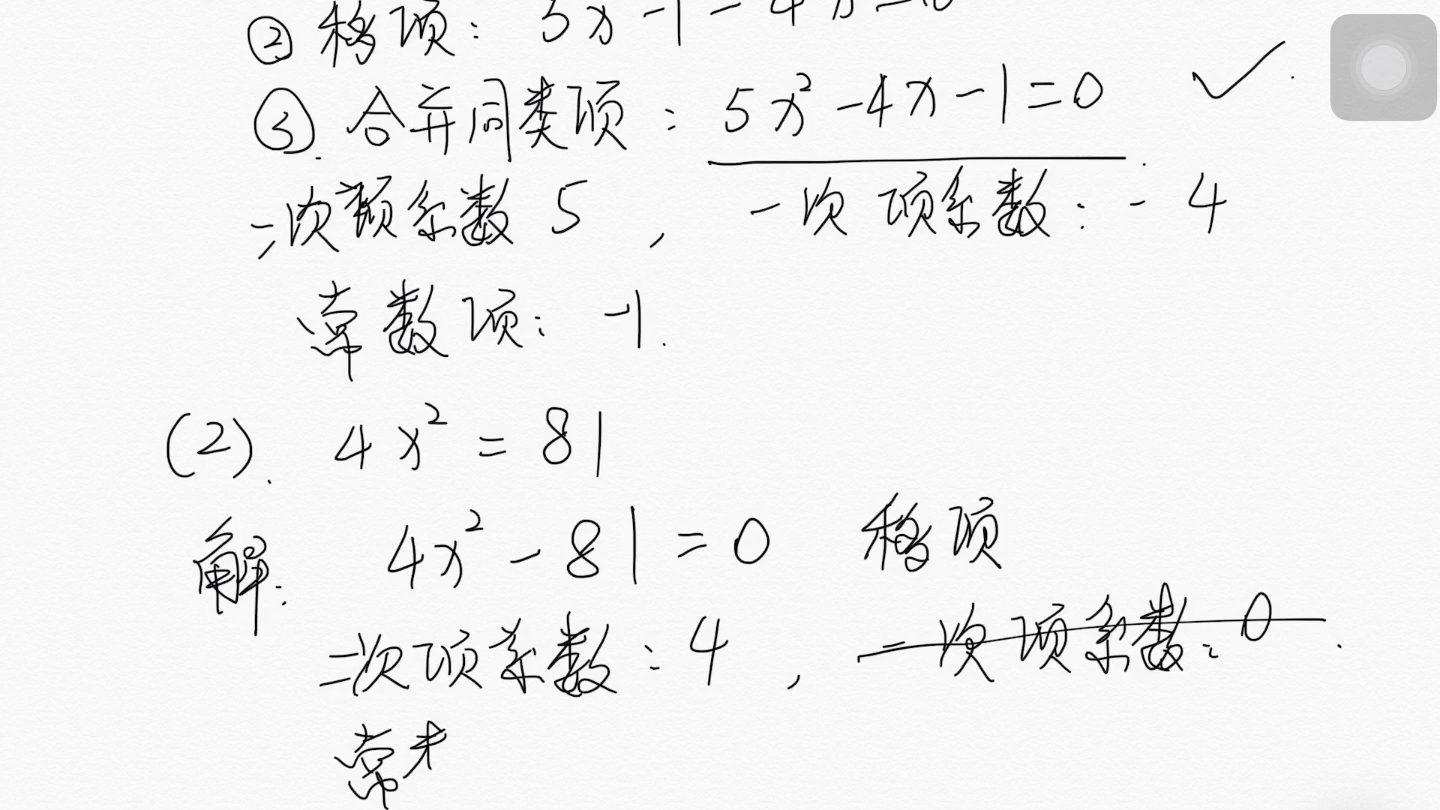 ② 移项：5x²-1-4x=0
③. 合并同类项：5x²-4x-1=0 ✓.
二次项系数 5，一次项系数：-4
常数项：-1.
(2). 4x²=81
解：4x²-81=0 移项
二次项系数：4，一次项系数：0.
常